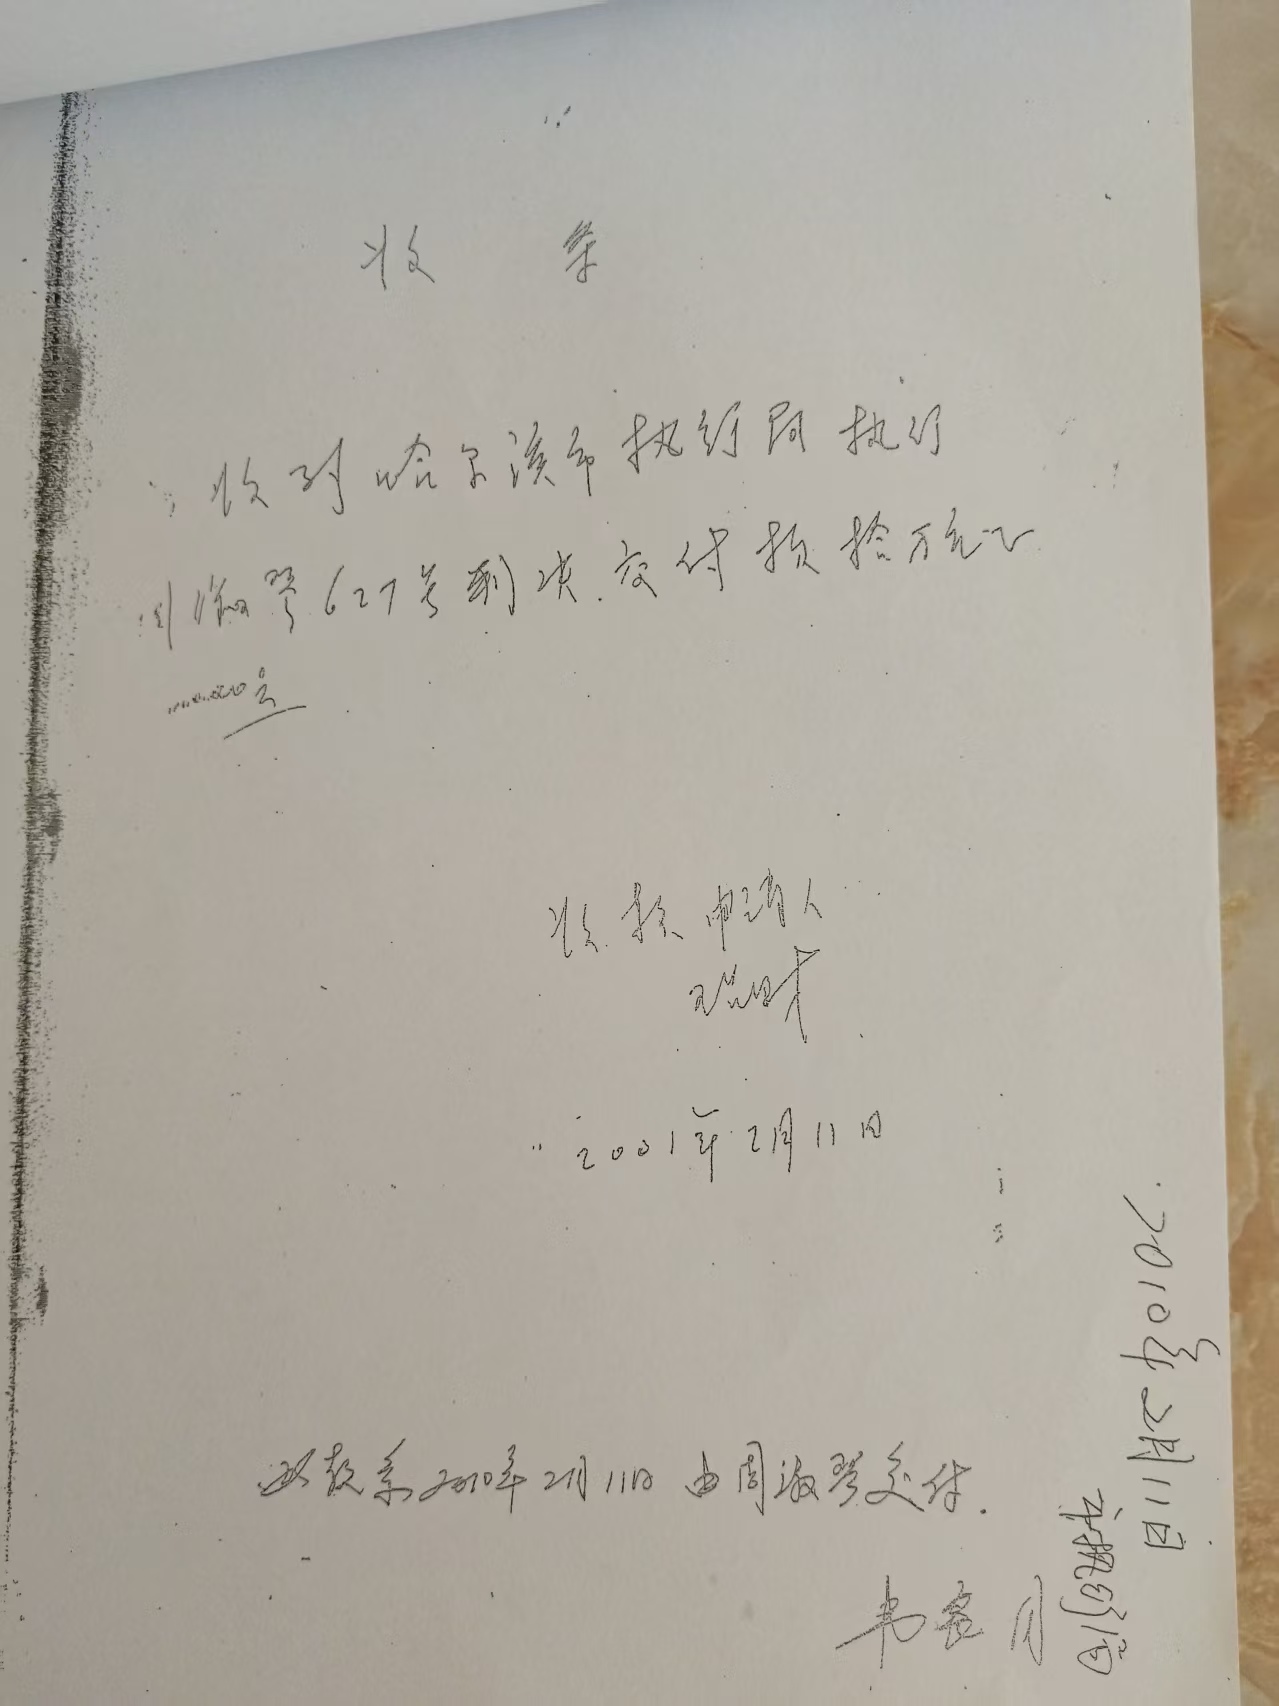 收 条
收到哈尔滨市执行局执行
周淑琴627号判决.交付款拾万元
收款申请人
2001年2月11日
此款系2010年2月11日由周淑琴交付.
2010年2月11日